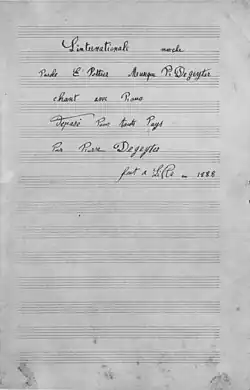 L'internationale marche
Parole E Pottier Musique Pre Degeyter
chant avec Piano
Déposé Pour touts Pays
Par Pierre Degeyter
fait a Lille en 1888